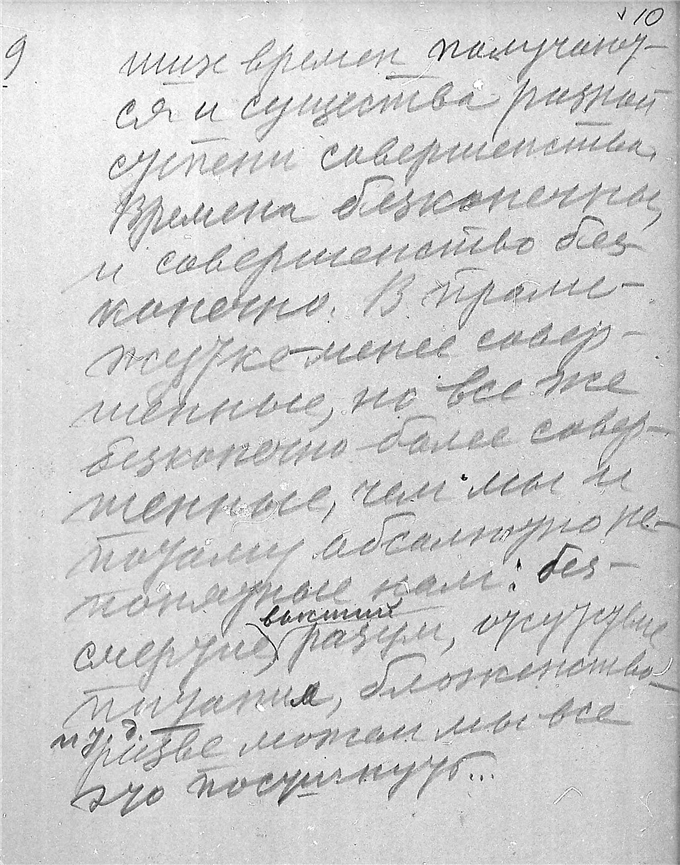 10
9
ших времен получают-
ся и существа разной
ступени совершенства.
Времена безконечны,
и совершенство без-
конечно. В проме-
жутке менее совер-
шенные, но все же
безконечно более совер-
шенные, чем мы и
потому абсолютно не-
понятные нам: без-
высший
смертие, разум, отсутствие
питания, блаженство
и т. д.
разве можем мы все
это постигнуть...